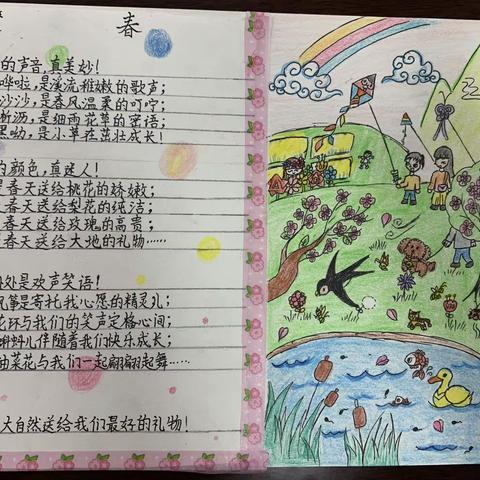 春
的声音,真美妙!
哗啦,是溪流稚嫩的歌声;
沙沙,是春风温柔的叮咛;
淅沥,是细雨花草的密语;
嘿呦,是小草在茁壮成长!
的颜色,真迷人!
春天送给桃花的娇嫩;
春天送给梨花的纯洁;
春天送给玫瑰的高贵;
春天送给大地的礼物……
处是欢声笑语!
风筝是寄托我心愿的精灵儿;
与我们的笑声定格心间;
蝌蚪儿伴随着我们快乐成长;
油菜花与我们一起翩翩起舞……
大自然送给我们最好的礼物!